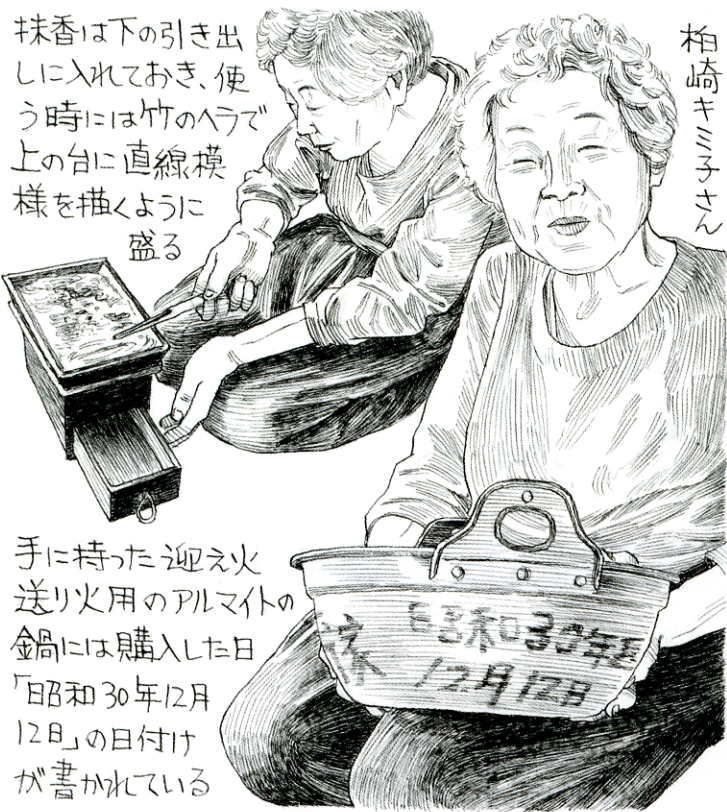 抹香は下の引き出
しに入れておき、使
う時には竹のヘラで
上の台に直線模
様を描くように
盛る
柏崎キミ子さん
手に持った迎え火
送り火用のアルマイトの
鍋には購入した日
「昭和30年12月
12日」の日付け
が書かれている
昭和30年
12月12日